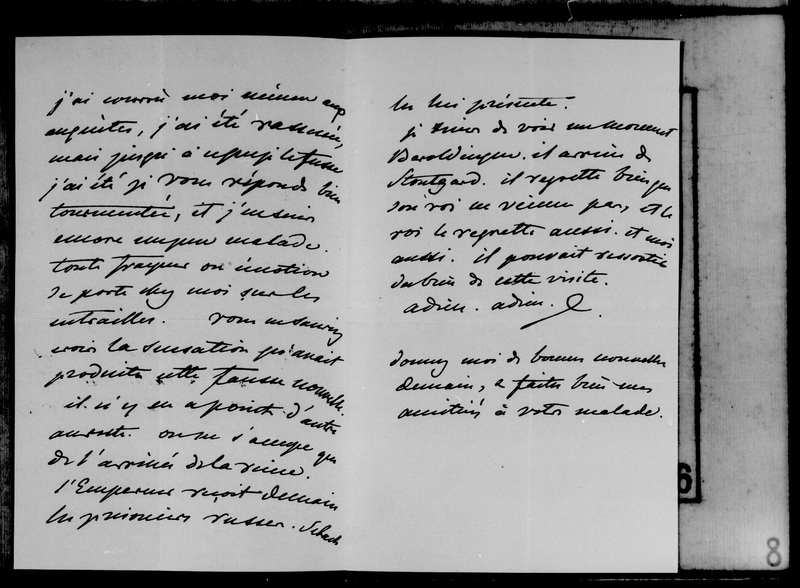 j'ai couru moi même aux
enquêtes, j'ai été rassurée,
mais jusqu'à ce que je le fusse
j'ai été je vous réponds bien
tourmentée, et j'en suis
encore un peu malade.
toute frayeur ou émotion
se porte chez moi sur les
entrailles. vous ne sauriez
croire la sensation qu'avait
produite cette fausse nouvelle.
il n'y en a point d'autre
au reste. on ne s'occupe que
de l'arrivée de la reine.
l'Empereur reçoit demain
les prisoniers russes.
les lui présente.
je viens de voir un moment
Beroldingen. il arrive de
Stoutgard. il regrette bien que
son roi ne vienne pas, et le
roi le regrette aussi. et moi
aussi. il pouvait ressortir
du bien de cette visite.
adieu. adieu.
donnez moi de bonnes nouvelles
demain, & faites bien mes
amitiés à votre malade.
6
8